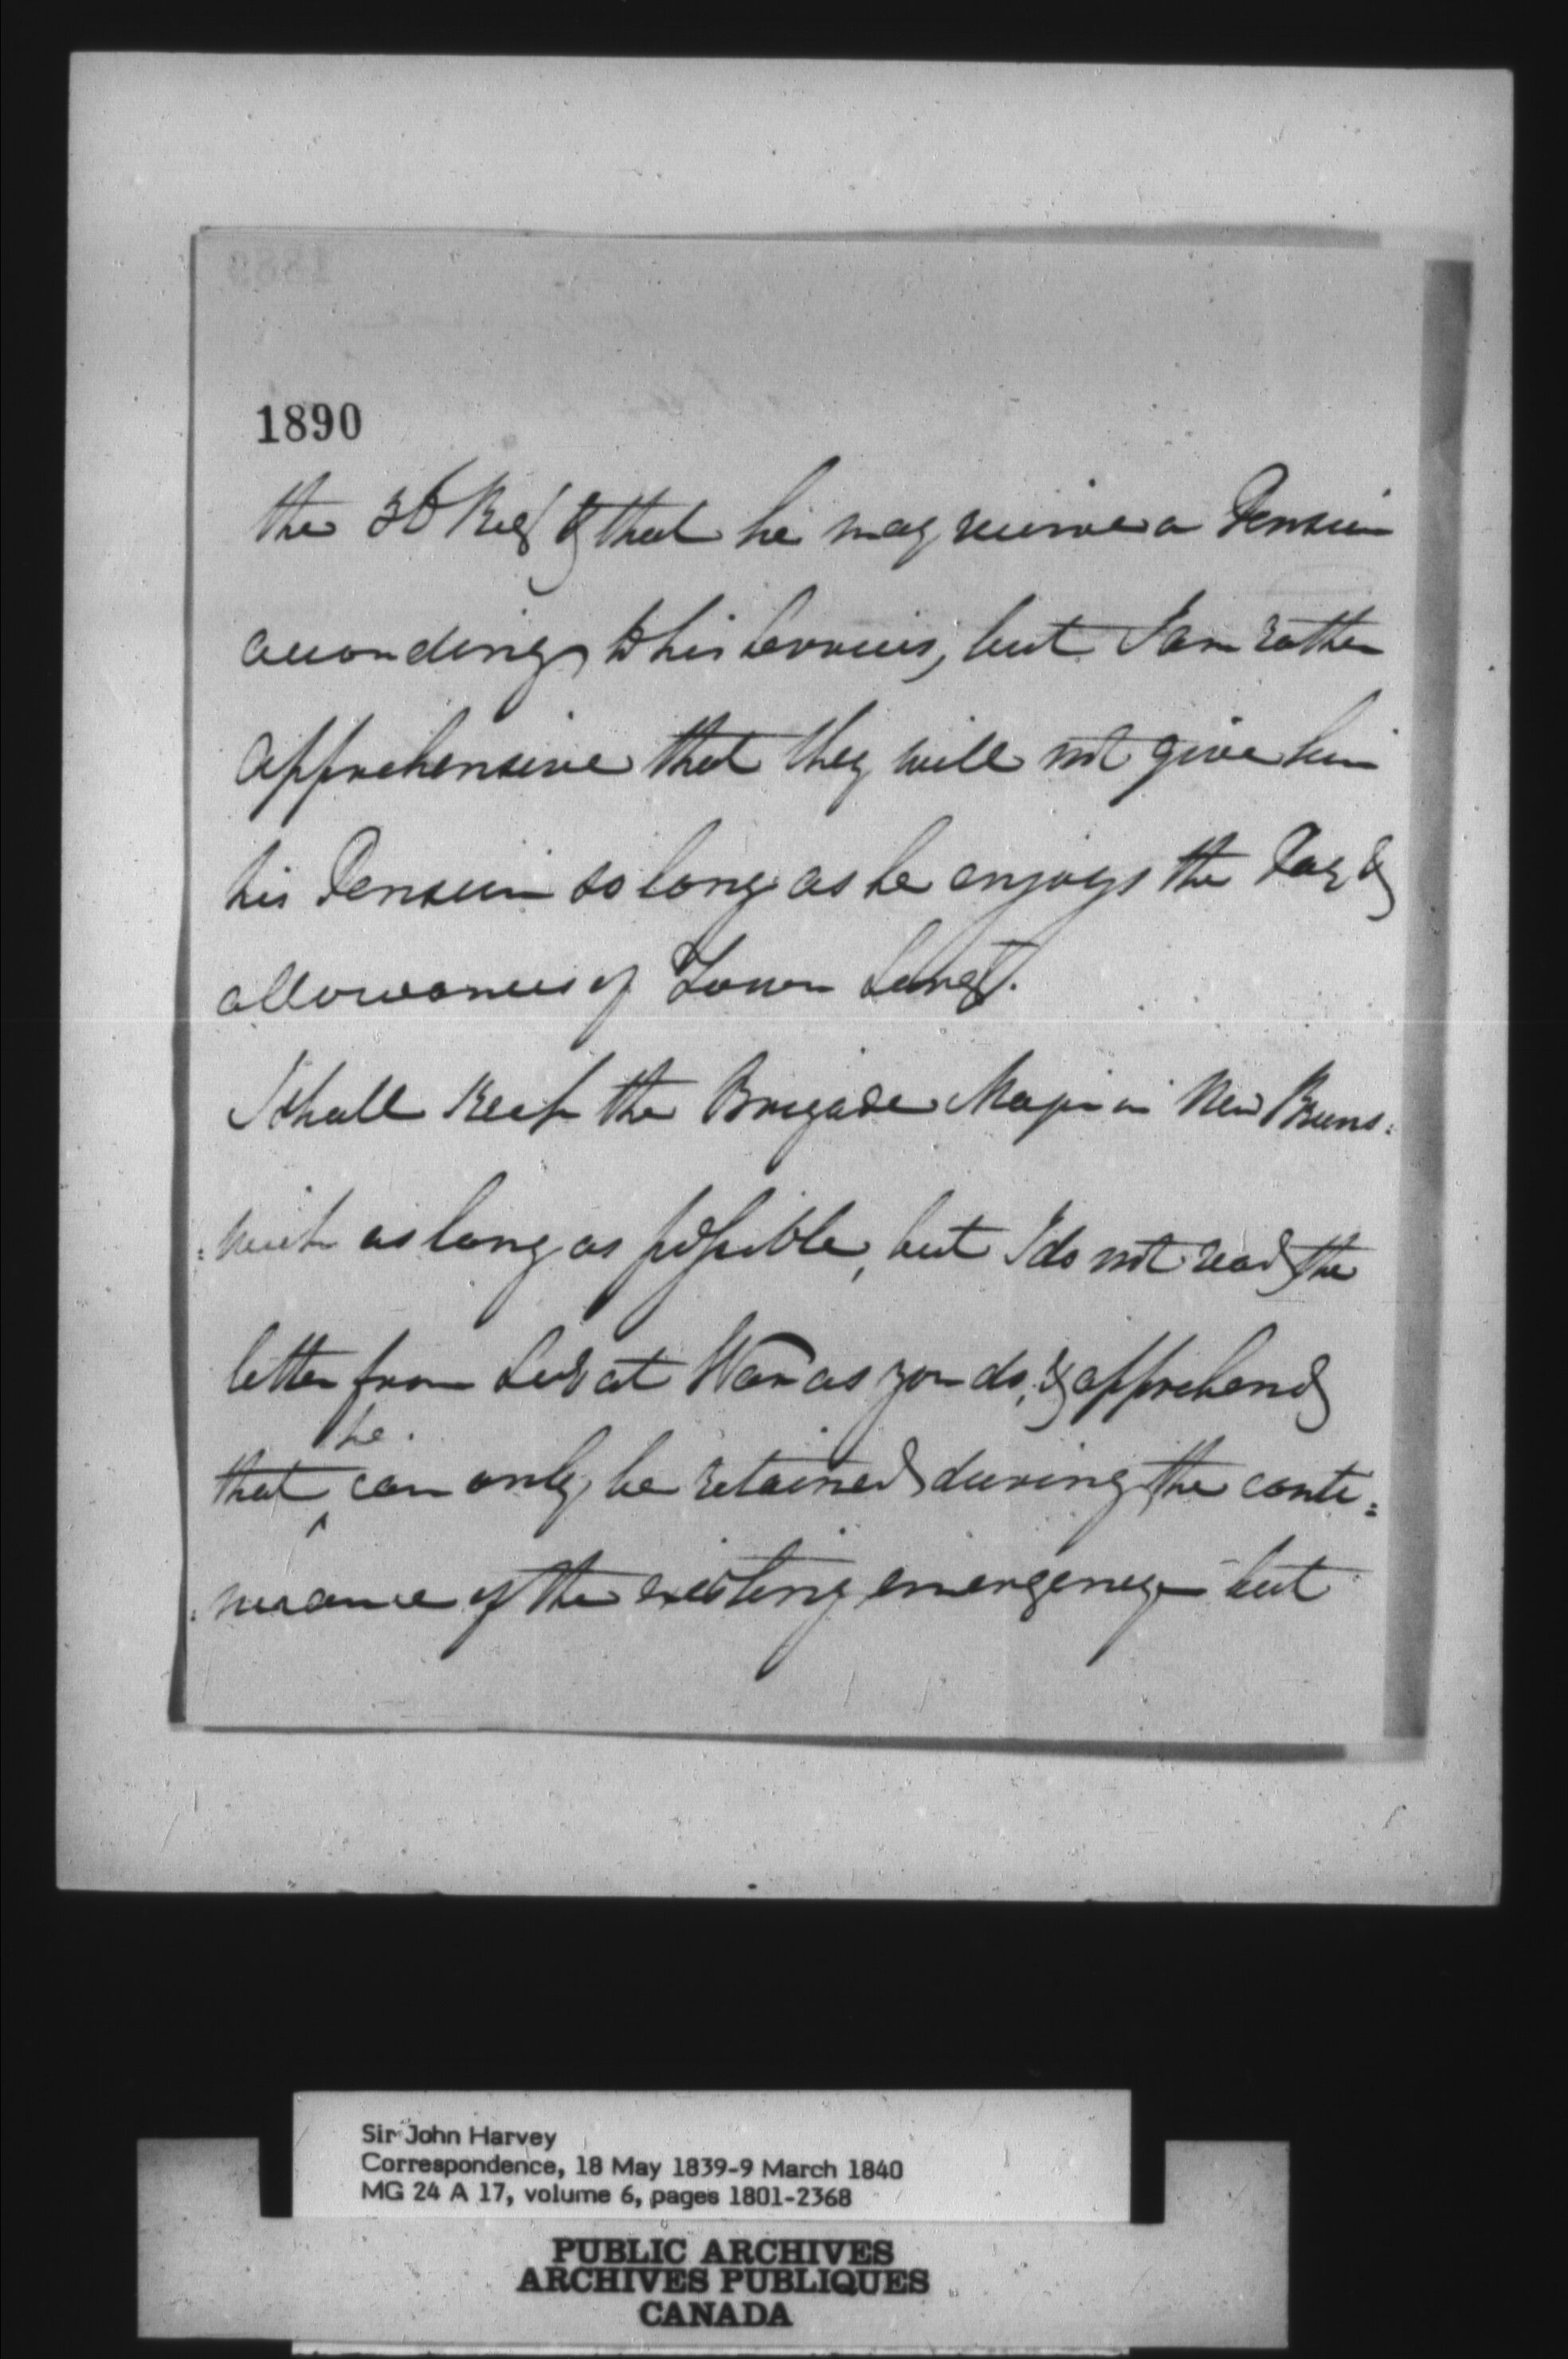 1890
the 36 Regt & that he may receive a Pension
according to his services, but I am rather
apprehensive that they will not give him
his Pension so long as he enjoys the Pay &
allowances of Town
I shall keep the Brigade Major in New Bruns=
=wick as long as possible, but I do not read the
letter from at War as you do, & apprehend
he
that ^ can only be retained during the conti=
=nuance of the existing emergency but
Sir John Harvey
Correspondence, 18 May 1839-9 March 1840
MG 24 A 17, volume 6, pages 1801-2368
PUBLIC ARCHIVES
ARCHIVES PUBLIQUES
CANADA